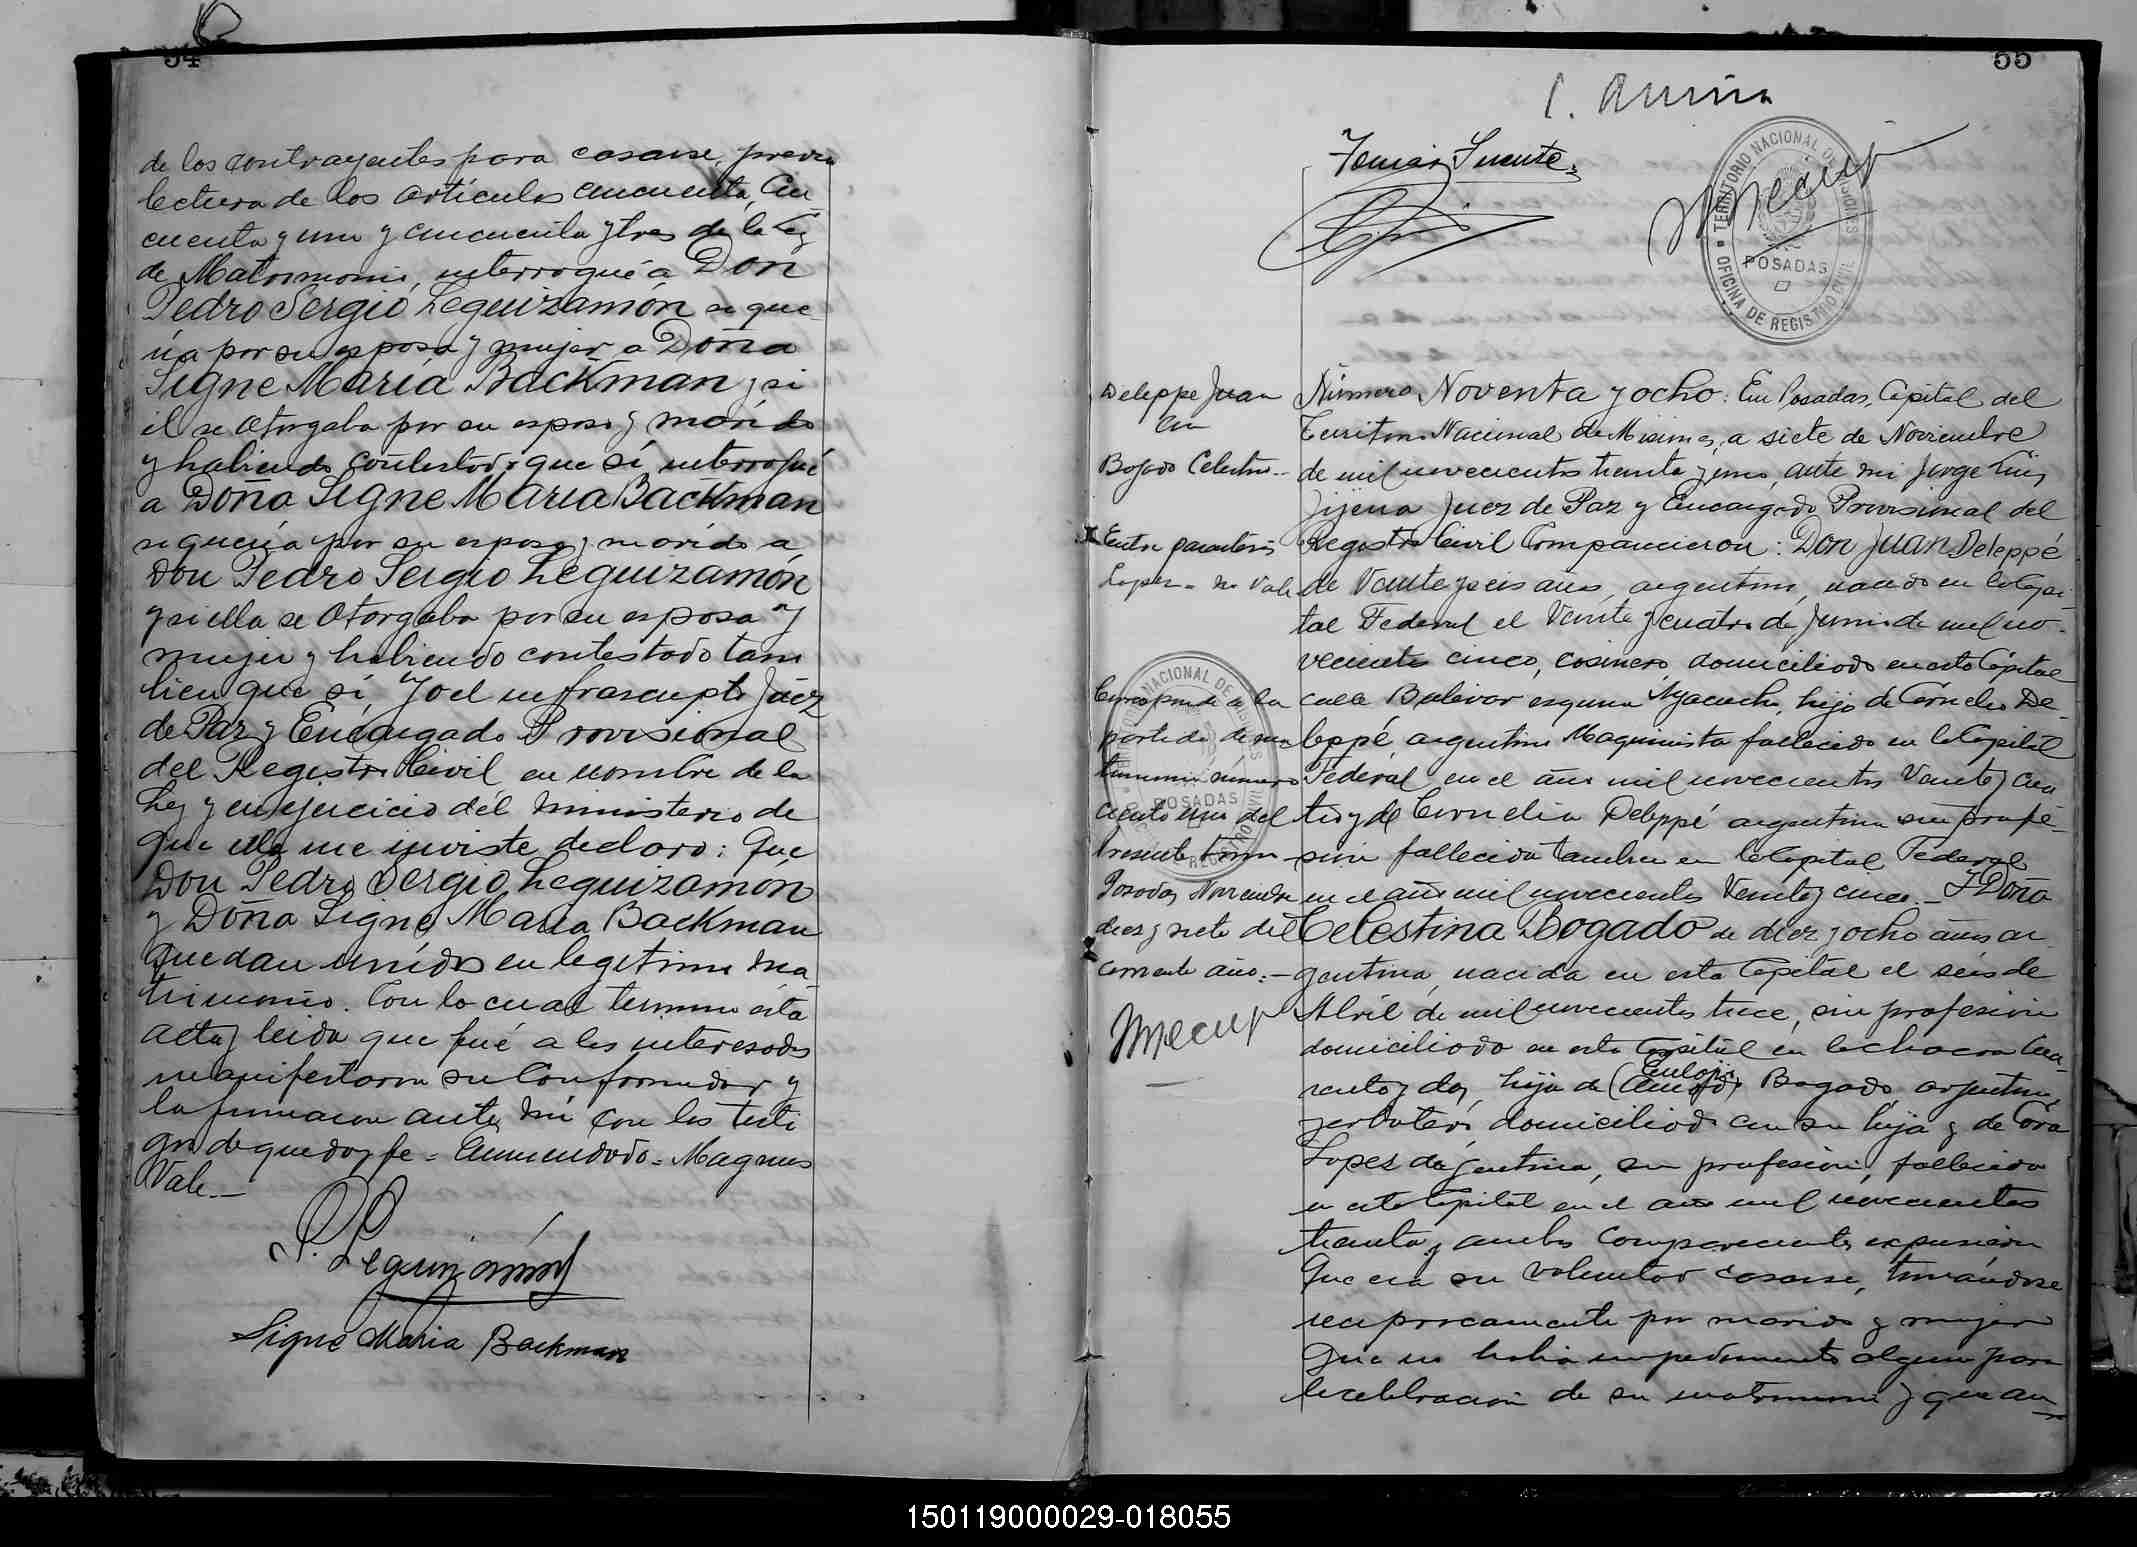 54
de los contrayentes para casarse, previa
lectura de los artículos cincuenta, cin
cuenta y uno y cincuenta y tres de la Ley
de Matrimonio, interrogué a Don
Pedro Sergio Leguizamón si que
ria por su esposa y mujer a Doña
Signe María Backman y si
él se otorgaba por su esposo y marido
y habiendo contestado que sí interrogué
a Doña Signe María Backman
si quería por su esposo y marido a
Don Pedro Sergio Leguizamón
y si ella se otorgaba por su esposa y
mujer y habiendo contestado tam
bien que sí, Yo el infrascripto Juez
de Paz y Encargado Provisional
del Registro Civil en nombre de la
Ley y en ejercicio del ministerio de
que ella me inviste declaro: Que
Don Pedro Sergio Leguizamon
y Doña Signe Maria Backman
quedan unidos en legitimo ma
trimonio. Con lo cual termino esta
acta y leida que fué a los interesados
manifestaron su conformidad y
la firmaron ante mí con los testi
gos de que doy fe = Enmendado = Magnus
Vale.—
P. Leguizamón
Signe Maria Backman
55
Tomás Fuente
TERRITORIO NACIONAL DE MISIONES
POSADAS
OFICINA DE REGISTRO CIVIL
Deleppe Juan
con
Bogado Celestina
Entre parentesis
Lopez = no vale
Corresponde a la
partida de ma
trimonio número
ciento uno del
presente tomo
Posadas Noviembre
diez y siete del
corriente año.—
Número Noventa y ocho: En Posadas, Capital del
Territorio Nacional de Misiones, a siete de Noviembre
de mil novecientos treinta y uno, ante mi Jorge Luis
Jijena Juez de Paz y Encargado Provisional del
Registro Civil Comparecieron: Don Juan Deleppé
de Veinte y seis años, argentino, nacido en la Capi-
tal Federal el Veinte y cuatro de Junio de mil no-
vecientos cinco, cosinero, domiciliado en esta Capital
calle Bolivar esquina Ayacucho, hijo de Cornelio De-
leppé argentino Maquinista fallecido en la Capital
Federal en el año mil novecientos Veinte y cua
tro y de Cornelia Deleppé argentina sin profe-
sion fallecida tambien en la Capital Federal
en el año mil novecientos Veinte y cinco.— Y Doña
Celestina Bogado de diez y ocho años ar
gentina, nacida en esta Capital el seis de
Abril de mil novecientos trece, sin profesion
domiciliada en esta Capital en la chacra Cua-
renta y dos, hija de Bogado, argentino,
yerbatero, domiciliado con su hija y de
Lopez argentina, sin profesion, fallecida
en esta Capital en el año mil novecientos
treinta y ambos comparecientes expusieron
Que era su voluntad casarse, tomándose
reciprocamente por marido y mujer
Que no habia impedimento alguno para
la celebracion de su matrimonio y que au
150119000029-018055